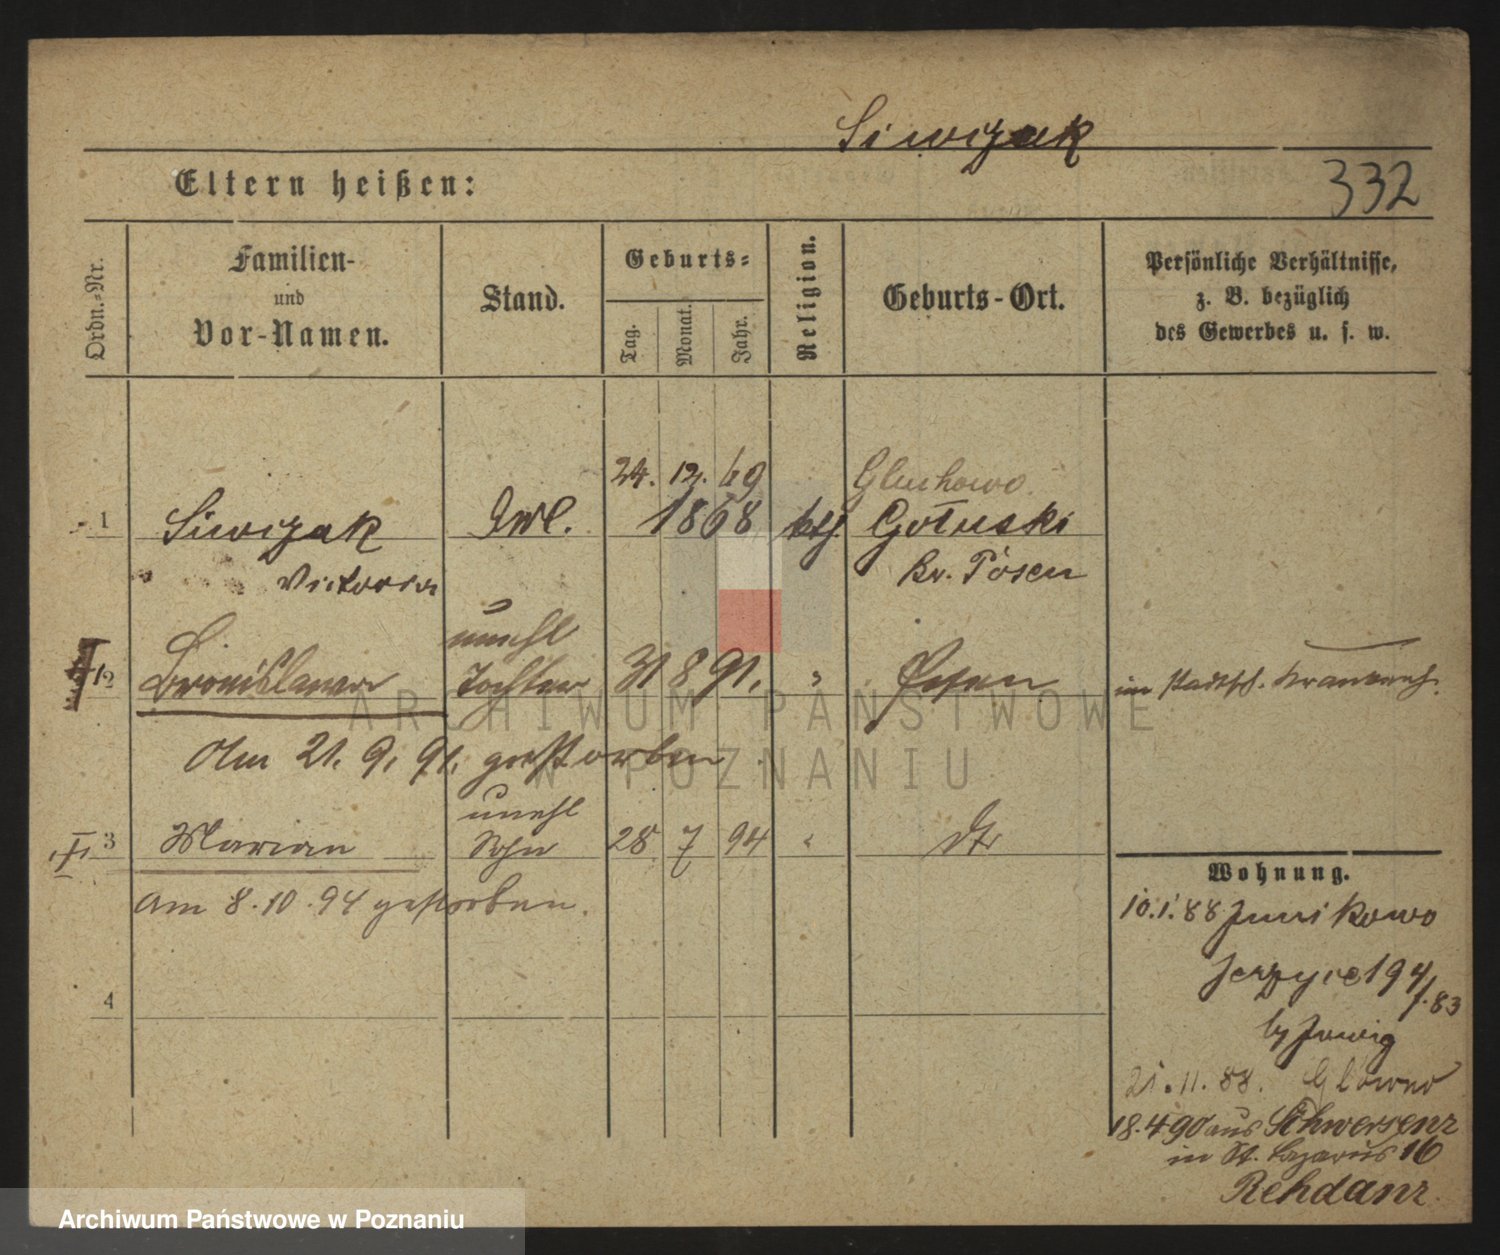 Siwczak
332
Eltern heißen:
Ordn.-Nr.
Familien-
und
Vor-Namen.
Stand.
Geburts-
Tag.
Monat.
Jahr.
Religion.
Geburts-Ort.
Persönliche Verhältnisse,
z. B. bezüglich
des Gewerbes u. s. w.
24. 12. 69
Gluchowo
1 Siwczak 1868 kth. Gołuski
Victoria Kr. Posen
unehl
2 Bronislawa Tochter 31 8 91. " Posen im städtsch. Krankenh.
Am 21. 9. 91. gestorben
unehl
3 Marian Sohn 28 7 94 " dto
am 8.10.94 gestorben.
4
Wohnung.
10.1.88 Junikowo
Jerzyce 194/83
by
21.11.88. Glowno
18.4 90 aus Schwersenz
in St. Lazarus 16
Rehdanz
ARCHIWUM PAŃSTWOWE
W POZNANIU
Archiwum Państwowe w Poznaniu